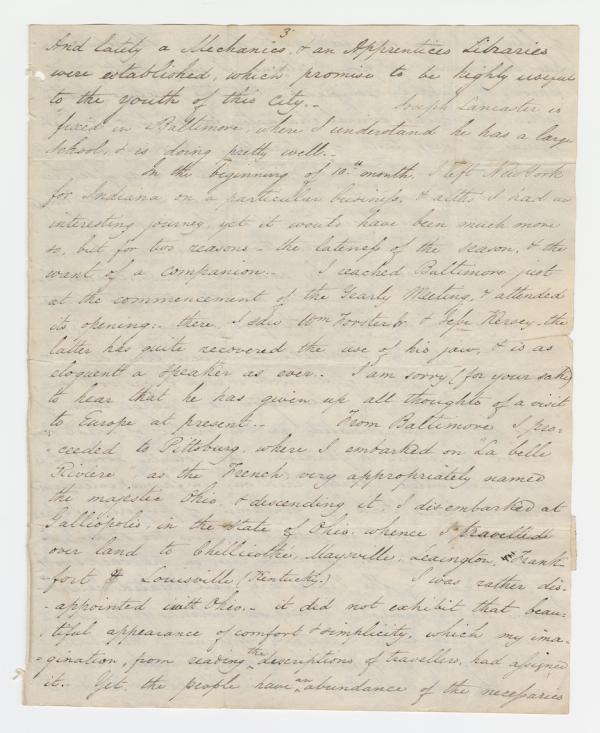 3
And lately a Mechanics, & an Apprentices Libraries
were established, which promise to be highly useful
to the youth of this city.- Joseph Lancaster is
fixed in Baltimore, where I understand he has a large
School, & is doing pretty well.-
In the beginning of 10.th month, I left New York
for Indiana on a particular business, & altho I had an
interesting journey, yet it would have been much more
so, but for two reasons - the lateness of the season, & the
want of a companion.- I reached Baltimore just
at the commencement of the Yearly Meeting, & attended
its opening;- there, I saw Wm Forster Jr & Jesse Kersey, - the
latter has quite recovered the use of his jaw, & is as
eloquent a speaker as ever.- I am sorry (for your sake)
to hear that he has given up all thoughts of a visit
to Europe at present.- From Baltimore I pro-
-ceeded to Pittsburg, where I embarked on "La belle
Riviere" as the French very appropriately named
the majestic Ohio, & descending it, I disembarked at
Galliopolis, in the State of Ohio, whence I travelled
over land to Chellicothe, Maysville, Lexington, Frank-
-fort & Louisville, (Kentucky.) I was rather dis-
-appointed with Ohio.- it did not exhibit that beau-
-tiful appearance of comfort & simplicity, which my ima-
-gination, from reading the descriptions of travellers, had assigned
it.- Yet, the people have an abundance of the necessaries